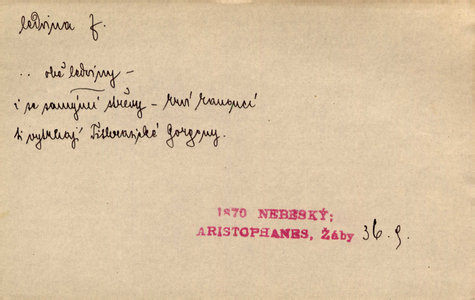 ledvina f.
.. obě ledviny –
i se samými střevy – krví kanoucí
ti vytrhají Tithrasijské Gorgony.
1870 NEBESKÝ;
ARISTOPHANES, Žáby 36.9.